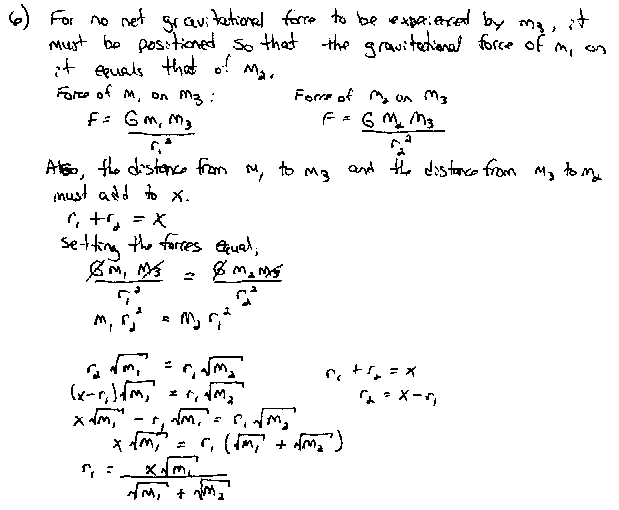 6) For no net gravitational force to be experienced by m₃, it
must be positioned so that the gravitational force of m₁ on
it equals that of m₂.
Force of m₁ on m₃: Force of m₂ on m₃
F = G m₁ m₃ / r₁² F = G m₂ m₃ / r₂²
Also, the distance from m₁ to m₃ and the distance from m₃ to m₂
must add to x.
r₁ + r₂ = x
Setting the forces equal,
G m₁ m₃ / r₁² = G m₂ m₃ / r₂²
m₁ r₂² = m₂ r₁²
r₂ √m₁ = r₁ √m₂ r₁ + r₂ = x
(x-r₁) √m₁ = r₁ √m₂ r₂ = x - r₁
x √m₁ - r₁ √m₁ = r₁ √m₂
x √m₁ = r₁ (√m₁ + √m₂)
r₁ = x √m₁ / √m₁ + √m₂